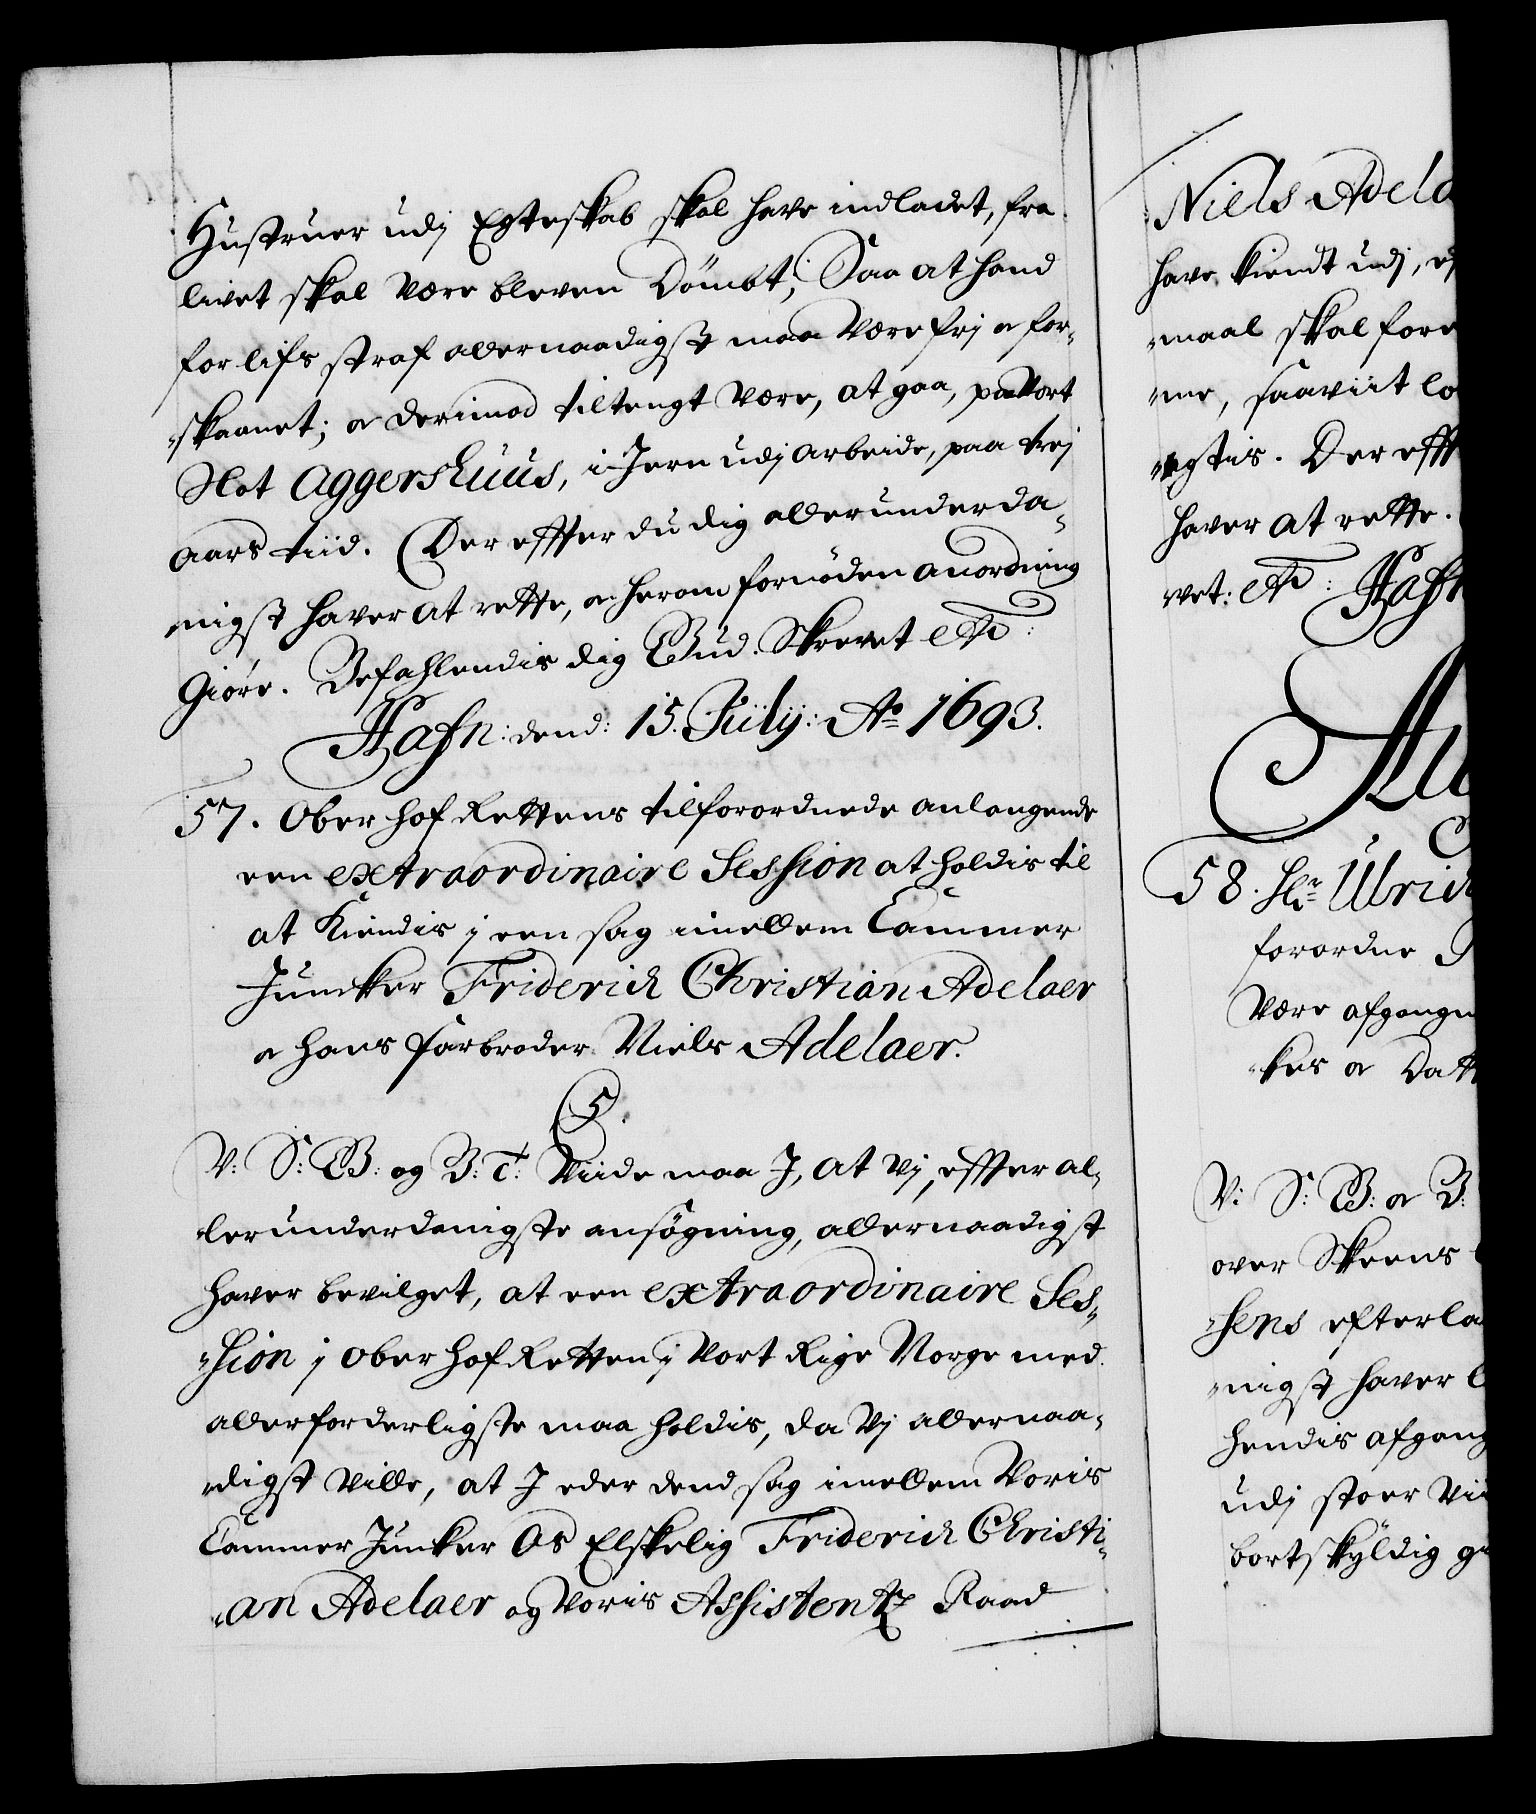 Hustruer udj Egteskab skal have indladet, fra
livet skal være bleven Dömbt; Saa at hand
for lifs straf allernaadigst maa være frj og for-
skaanet; og derimod tiltengt være, at gaa, paa Vort
Slot Aggershuus, i Jern udj arbeide, paa trej
aars tiid. Der effter du dig allerunderda-
nigst haver at rette, og herom fornöden anordning
giöre. Befahlendis dig Gud. Skrevet etc:
Hafn: dend: 15. Julij: Ao 1693.
57. Ober Hof Rettens tilforordnede anlangende
een extraordinaire Session at holdis til
at Kiendis j een sag imellem Cammer
Juncker Friderich Christian Adelaer
og hans farbroder Niels Adelaer.
C5.
V: S: G: og B: T: Viide maa J, at Vj, effter al-
lerunderdanigste ansögning, allernaadigst
haver bevilget, at een extraordinaire Ses-
sion j Ober Hof Retten j Vort Rige Norge med
allerforderligste maa holdis, da Vj allernaa-
digst ville, at J eder dend sag imellem Voris
Cammer Juncker Os Elskelig Friderich Christi-
an Adelaer og Voris Assistentz Raad
Niels Adela
have kiendt udj, ej
maal skal fore
me, saaviit lo
egtis. Der efft
haver at rette.
vet. etc: Hafn
58. Hr Ulrich
forordne
være afgangn
kes og Datt
V: S: G: og B:
over Skeens
sens efterla
nigst haver
hendis afgang
udj stoer Vii
bortskyldig